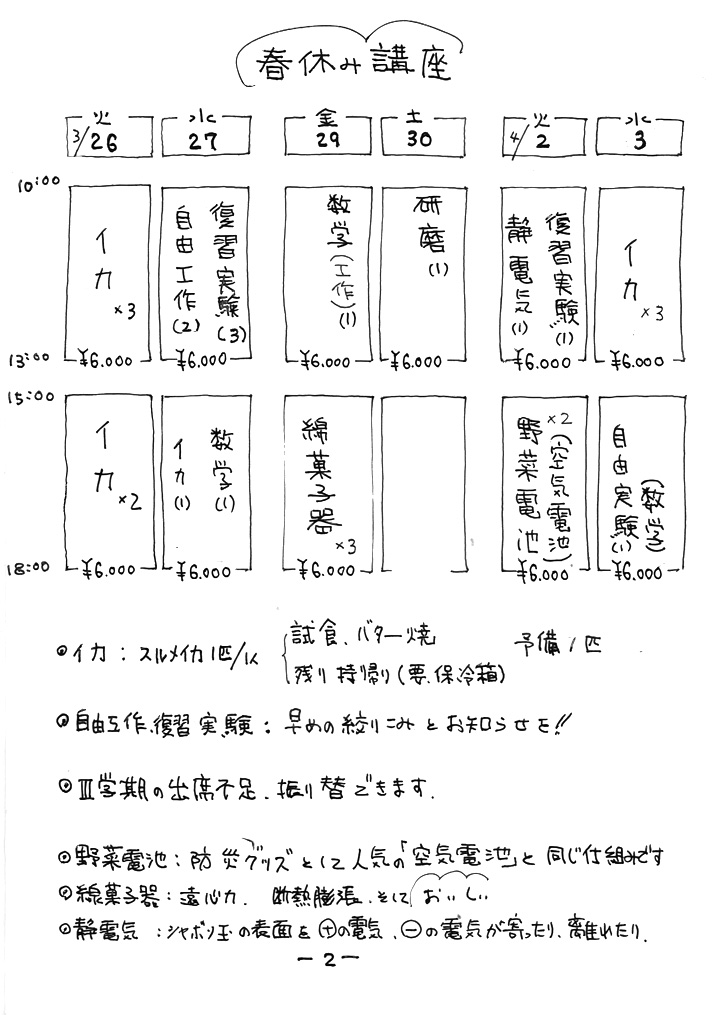 春休み講座
火 水 金 土 火 水
3/26 27 29 30 4/2 3
10:00
イカ ×3
復習実験(3)
自由工作(2)
数学(工作)(1)
研磨(1)
復習実験(1)
静電気(1)
イカ ×3
13:00 ¥6.000 ¥6.000 ¥6.000 ¥6.000 ¥6.000 ¥6.000
15:00
イカ ×2
数学(1)
イカ(1)
綿菓子器 ×3
×2(空気電池)
野菜電池
(数学)
自由実験(1)
18:00 ¥6.000 ¥6.000 ¥6.000 ¥6.000 ¥6.000
◉イカ:スルメイカ1匹/1人 試食、バター焼 予備1匹
残り持帰り(要.保冷箱)
◉自由工作、復習実験:早めの絞りこみとお知らせを!!
◉Ⅲ学期の出席不足.振り替できます.
◉野菜電池:防災グッズとして人気の「空気電池」と同じ仕組みです
◉綿菓子器:遠心力.断熱膨張.そしておいしい
◉静電気:シャボン玉の表面を⊕の電気、⊖の電気が寄ったり、離れたり.
-2-